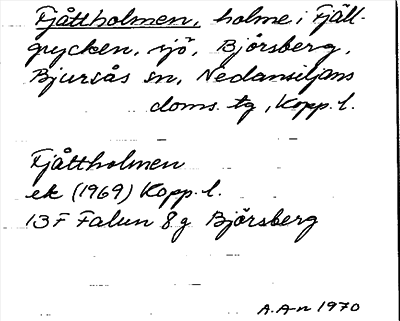 Fjåttholmen, holme i Fjäll-
grycken, sjö, Björsberg,
Bjursås sn, Nedansiljans
doms. tg, Kopp. l.
Fjåttholmen
ek (1969) Kopp. l.
13F Falun 8g Björsberg
A.A-n 1970